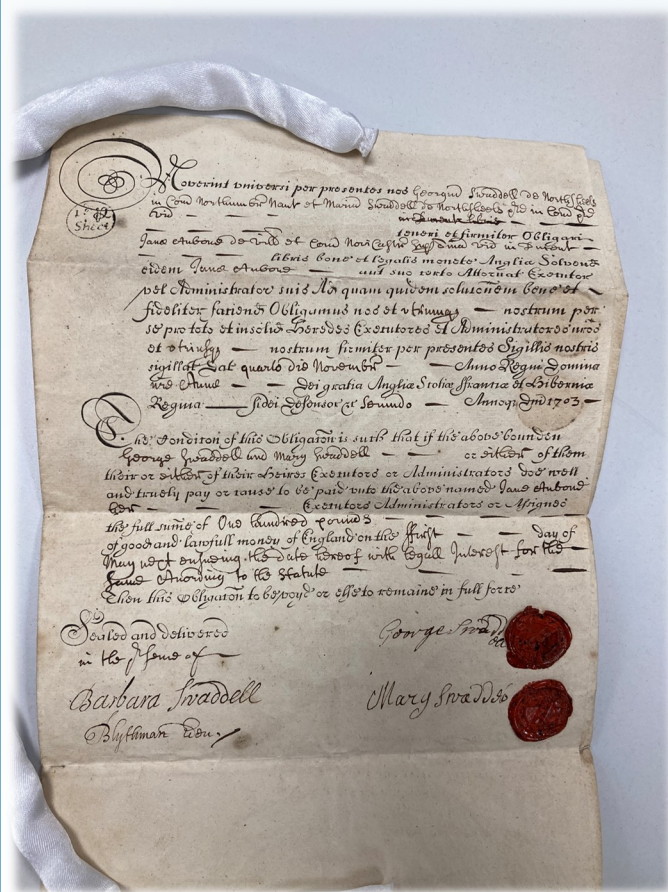 Noverint universi per presentes nos Georgiu Swaddell de North Sheels
in Com Northumber Naut et Maria Swaddell de North Sheels in Com
vid
teneri et firmiter Obligari
Jane Aubone de Vill et Com Novi Castri sup vid in
libris bone et legalis monete Anglie Solvend
eidem Jane Aubone aut suo certo Attornat Executor
vel Administrator suis Ad quam quidem solucionem bene et
fideliter faciend Obligamus nos et utrumqz nostrum per
se pro toto et in solid Heredes Executores et Administratores nros
et utriusqz nostrum firmiter per presentes Sigillis nostris
sigillat Dat quarto die Novembr Anno Regni Domina
nre Anne Dei gratia Anglie Scotie ffrancie et Hibernie
Regina fidei defensor &c Secundo Annoqz Dni 1703
The Condicon of this Obligacon is such that if the above bounden
George Swaddell and Mary Swaddell or either of them
their or either of their Heires Executors or Administrators doe well
and truely pay or cause to be paid unto the above named Jane Aubone
her Executors Administrators or Assignes
the full sume of One hundred pounds
of good and lawfull money of England on the ffirst day of
May next ensuing the date hereof with legall Interest for the
same According to the Statute
Then this Obligacon to be voyd or else to remaine in full force
Sealed and delivered
in the presence of
George Swaddell
Barbara Swaddell
Mary Swaddel
Blythman